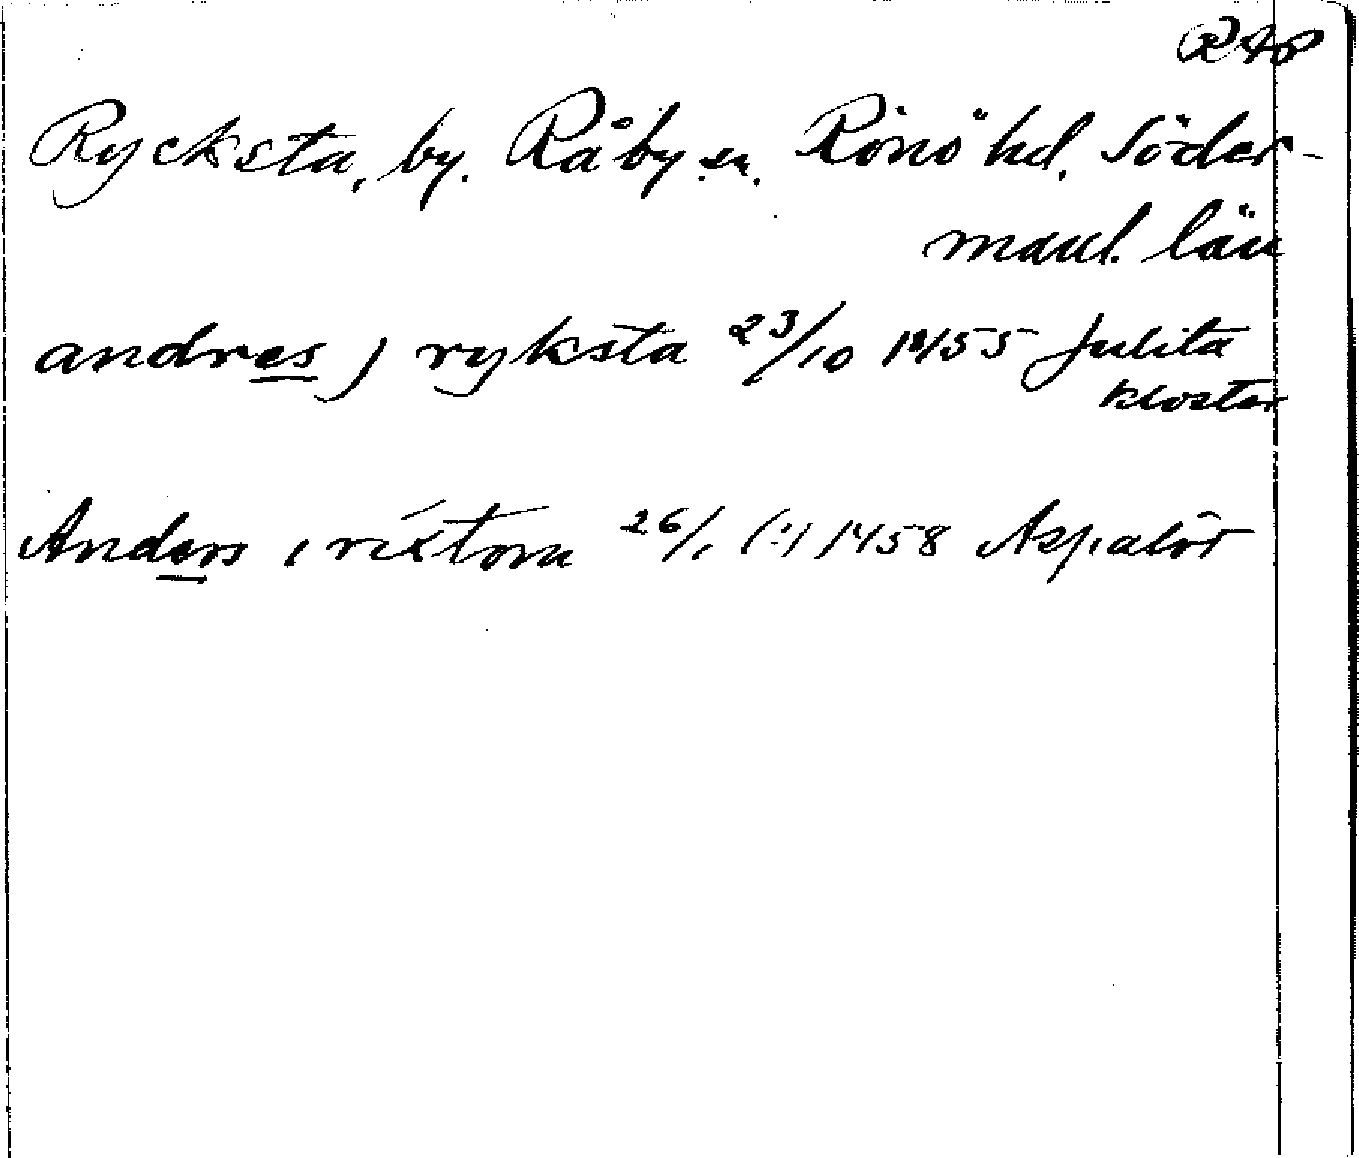 Rycksta, by. Råby sn. Rönö hd. Söder-
manl. län
andres j ryksta 23/10 1455 Julita
kloster
Anders i rixtom 26/1 (?) 1458